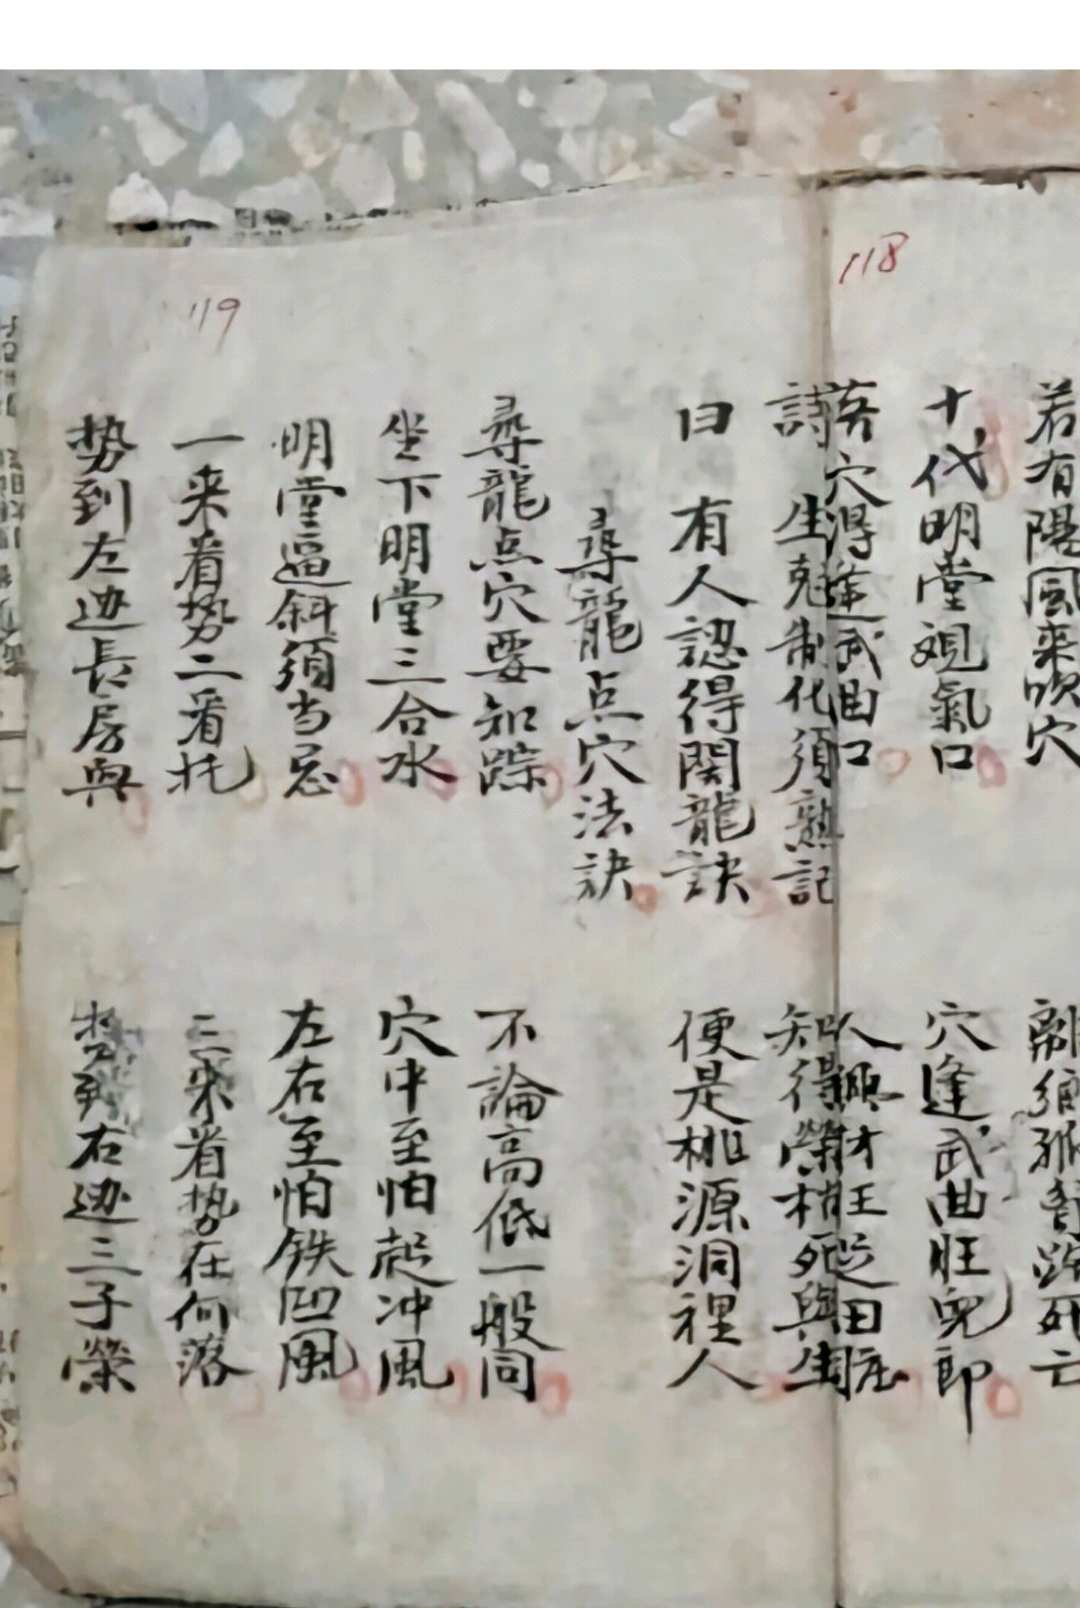 118
若有陽風来吹穴
離鄉孤寡跡死亡
十代明堂覌氣口
穴逢武曲旺兒郎
若穴得逢武曲口
人興財旺足田庄
詩 生尅制化須熟記
知得榮枯死與生
曰 有人認得関龍訣
便是桃源洞裡人
119
尋龍点穴法訣
尋龍点穴要知踪
不論高低一般同
坐下明堂三合水
穴中至怕起冲風
明堂逼斜須当忌
左右至怕铁凹風
一来看势二看托
三来看势在何落
势到左边長房興
势到右边三子榮